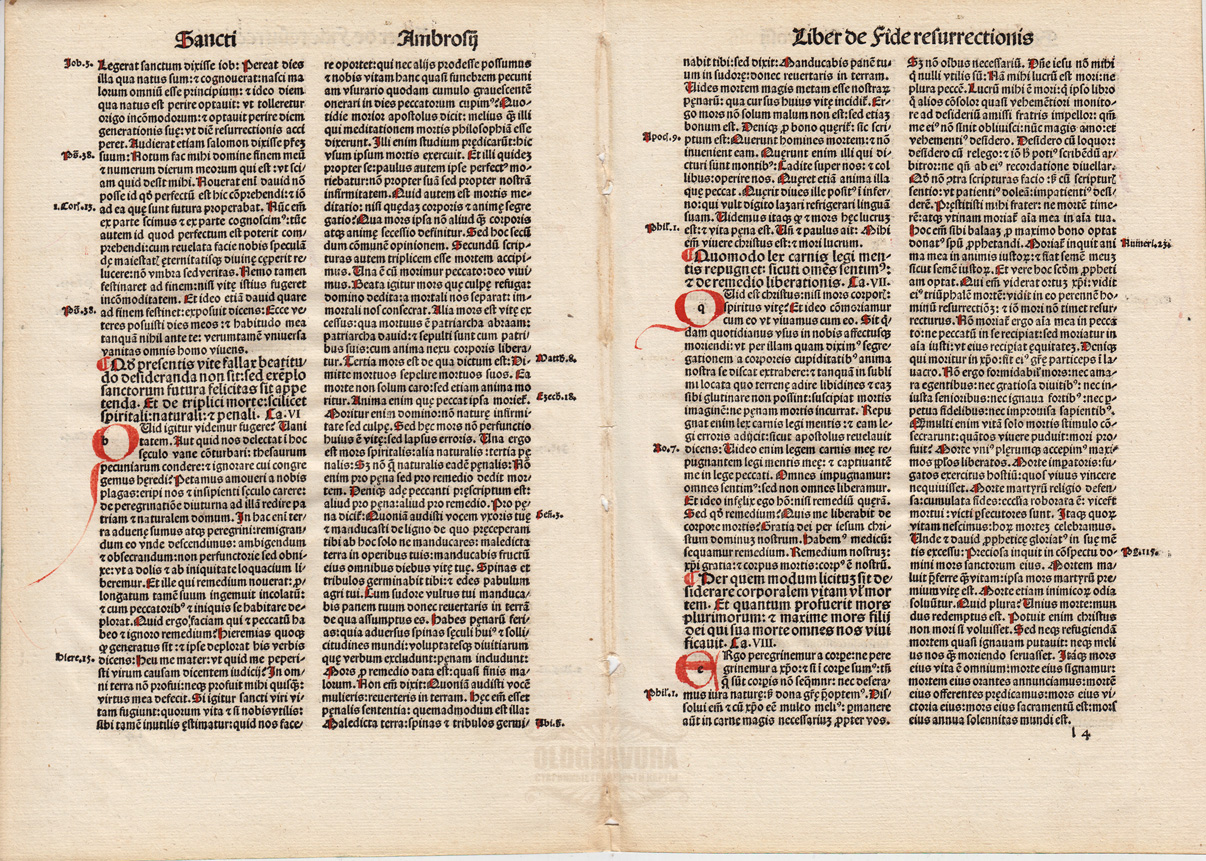 Sancti Ambrosij
Job.3.
Legerat sanctum dixisse iob: Pereat dies
illa qua natus sum: ⁊ cognouerat: nasci ma
lorum omniū esse principium: ⁊ ideo diem
qua natus est perire optauit: vt tolleretur
origo incōmodorum: ⁊ optauit perire diem
generationis suę: vt diē resurrectionis acci
peret. Audierat etiam salomon dixisse
Ps.38.
suum: Notum fac mihi domine finem meū
⁊ numerum dierum meorum qui est: vt sci
am quid desit mihi. Nouerat eni dauid nō
posse id qō perfectū est hic cōprehendi: ⁊ iō
1.Cor.13.
ad ea que sunt futura properabat. Nūc em̄
ex parte scimus ⁊ ex parte cognoscim⁹: tūc
autem id quod perfectum est poterit com
prehendi: cum reuelata facie nobis speculā
dę maiestatꝭ eternitatisqꝫ diuinę cęperit re
lucere: nō vmbra sed veritas. Nemo tamen
festinaret ad finem: nisi vitę istius fugeret
incōmoditatem. Et ideo etiā dauid quare
Ps.38.
ad finem festinet: exposuit dicens: Ecce ve
teres posuisti dies meos: ⁊ habitudo mea
tanquā nihil ante te: verumtamē vniuersa
vanitas omnis homo viuens.
¶ Qō presentis vite fallax beatitu
do desideranda non sit: sed exēplo
sanctorum futura felicitas sit appe
tenda. Et de triplici morte: scilicet
spiritali: naturali: ⁊ penali. Ca.VI
Quid igitur videmur fugere? Uani
tatem. Aut quid nos delectat i hoc
sęculo vane cōturbari: thesaurum
pecuniarum condere: ⁊ ignorare cui congre
gemus heredi? Petamus amoueri a nobis
plagas: eripi nos e insipienti sęculo carere:
de peregrinatiōe diuturna ad illā redire pa
triam ⁊ naturalem domum. In hac eni ter
ra aduenę sumus atqꝫ peregrini: remigran
dum eo vnde descendimus: ambigendum
⁊ obsecrandum: non perfunctorie sed obni
xe: vt a dolis ⁊ ab iniquitate loquacium li
beremur. Et ille qui remedium nouerat: ꝓ
longatum tamē suum ingemuit incolatū:
⁊ cum peccatorib⁹ ⁊ iniquis se habitare de
plorat. Quid ergo faciam qui ⁊ peccatū ha
beo ⁊ ignoro remedium? Hieremias quoqꝫ
ꝙ generatus sit: ⁊ ipse deplorat his verbis
Hiere.15.
dicens: Heu me mater: vt quid me peperi
sti virum causam dicentem iudicij? In om
ni terra nō profui: neqꝫ profuit mihi quisqꝫ:
virtus mea defecit. Si igitur sancti viri vi
tam fugiunt: quorum vita ⁊ si nobis vtilis:
sibi tamē inutilis estimatur: quid nos face
re oportet: qui nec alijs prodesse possumus
⁊ nobis vitam hanc quasi funebrem pecuni
am vsurario quodam cumulo grauescentē
onerari in dies peccatorum cupim⁹? Quo
tidie morior apostolus dicit: melius ꝙ illi
qui meditationem mortis philosophiā esse
dixerunt. Illi enim studium prędicarūt: hic
vsum ipsum mortis exercuit. Et illi quidē
propter se: paulus autem ipse perfect⁹ mo
riebatur: nō propter suā sed propter nostrā
infirmitatem. Quid autem est mortis me
ditatio: nisi quędaꝫ corporis ⁊ animę segre
gatio? Qua mors ipsa nō aliud ꝙ corporis
atqꝫ anime secessio definitur. Sed hoc secū
dum cōmunē opinionem. Secundū scrip
turas autem triplicem esse mortem accipi
mus. Una ē cū morimur peccato: deo viui
mus. Beata igitur mors que culpę refuga:
domino dedita: a mortali nos separat: im
mortali nos consecrat. Alia mors est vitę ex
cessus: qua mortuus ē patriarcha abraam:
patriarcha dauid: ⁊ sepulti sunt cum patri
bus suis: cum anima nexu corporis libera
Matth.8.
tur. Tertia mors est de qua dictum est: Di
mitte mortuos sepelire mortuos suos. Ea
morte non solum caro: sed etiam anima mo
Ezech.18.
ritur. Anima enim que peccat ipsa morietꝛ.
Moritur enim domino: nō naturę infirmi
tate sed culpę. Sed hęc mors nō perfunctio
huius ē vitę: sed lapsus erroris. Una ergo
est mors spiritalis: alia naturalis: tertia pę
nalis: Sꝫ nō ꝗ̄ naturalis eadē pęnalis: Nō
enim pro pęna sed pro remedio dedit mor
tem. Deniqꝫ adę peccanti pręscriptum est:
aliud pro pęna: aliud pro remedio. Pro pę
Gen̄.3.
na dicit̄: Quoniā audisti vocem vxoris tuę
⁊ manducasti de ligno de quo pręceperam
tibi ab hoc solo ne manducares: maledicta
terra in operibus tuis: manducabis fructū
eius omnibus diebus vitę tuę. Spinas et
tribulos germinabit tibi: ⁊ edes pabulum
agri tui. Cum sudore vultus tui manduca
bis panem tuum donec reuertaris in terrā
de qua assumptus es. Habes pęnarū feri
as: quia aduersus spinas sęculi hui⁹ ⁊ solli
citudines mundi: voluptatesqꝫ diuitiarum
que verbum excludunt: pęnam includunt:
Mors ꝓ remedio data est: quasi finis ma
lorum. Non em̄ dixit: Quoniā audisti vocē
mulieris: reuerteris in terram. Hęc em̄ esset
penalis sententia: quemadmodum est illa:
Ibi.j.
Maledicta terra: spinas ⁊ tribulos germi
Liber de Fide resurrectionis
nabit tibi: sed dixit: Manducabis panē tu
um in sudore: donec reuertaris in terram.
Uides mortem magis metam esse nostraꝝ
pęnarū: qua cursus huius vitę incidit̄. Er
go mors nō solum malum non est: sed etiaꝫ
bonum est. Deniqꝫ ꝓ bono querit̄: sic scri
Apoc.9.
ptum est: Querunt homines mortem: ⁊ nō
inuenient eam. Querent enim illi qui di
cturi sunt montib⁹: Cadite super nos: ⁊ col
libus: operire nos. Queret etiā anima illa
que peccat. Querit diues ille posit⁹ i infer
no: qui vult digito lazari refrigerari linguā
suam. Uidemus itaqꝫ ꝙ ⁊ mors hęc lucrū
Phil.1.
est: ⁊ vita pęna est. Un̄ ⁊ paulus ait: Mihi
em̄ viuere christus est: ⁊ mori lucrum.
¶ Quomodo lex carnis legi men
tis repugnet: sicuti omēs sentim⁹:
⁊ de remedio liberationis. Ca.VII.
Quid est christus: nisi mors corpoꝝ:
spiritus vitę? Et ideo cōmoriamur
cum eo vt viuamus cum eo. Sit q̄
dam quotidianus vsus in nobis affectusqꝫ
moriendi: vt per illam quam dixim⁹ segre
gationem a corporeis cupiditatib⁹ anima
nostra se discat extrahere: ⁊ tanquā in subli
mi locata quo terrenę adire libidines ⁊ eaꝫ
sibi glutinare non possint: suscipiat mortis
imaginē: ne pęnam mortis incurrat. Repu
gnat enim lex carnis legi mentis: ⁊ eam le
gi erroris adijcit: sicut apostolus reuelauit
Ro.7.
dicens: Uideo enim legem carnis meę re
pugnantem legi mentis meę: ⁊ captiuantē
me in lege peccati. Omnes impugnamur:
omnes sentim⁹: sed non omnes liberamur.
Et ideo infęlix ego hō: nisi remediū querā.
Sed qō remedium? Quis me liberabit de
corpore mortis? Gratia dei per iesum chri
stum dominum nostrum. Habem⁹ medicū:
sequamur remedium. Remedium nostrum:
xp̄i gratia: ⁊ corpus mortis: corp⁹ ē nostrū.
¶ Per quem modum licitū sit de
siderare corporalem vitam vl' mor
tem. Et quantum profuerit mors
plurimorum: ⁊ maxime mors filij
dei qui sua morte omnes nos viui
ficauit. Ca.VIII.
Ergo peregrinemur a corpe: ne pere
grinemur a xp̄o: ⁊ si i corpe sum⁹: tn̄
q̄ sūt corpis nō seq̄mnr: nec desera
Phil.1.
mus iura naturę: sꝫ dona grę p̄optem⁹. Dis
solui em̄ ⁊ cū xp̄o eē multo meli⁹: ꝓmanere
aūt in carne magis necessariū ꝓpter vos.
Sꝫ non oībus necessariū. Dn̄e iesu nō mihi
q̄ nulli vtilis sū: Nā mihi lucrū est mori: ne
plura peccē. Lucrū mihi ē mori: q̄ ipso libro
q̄ alios cōsolor quasi vehemētiori monito
re ad desideriū amissi fratris impellor: qm̄
me ei⁹ nō sinit obliuisci: nūc magis amo: et
vehementi⁹ desidero. Desidero cū loquor:
desidero cū relego: ⁊ iō hᵒ poti⁹ scribēdū ar
bitror: ne qn̄ ab ei⁹ recordatione diuellar.
Qō nō p̄tra scripturas facio: sꝫ cū scripturꝭ
sentio: vt patienti⁹ doleā: impatienti⁹ desi
derē. Pręstitisti mihi frater: ne mortē time
rē: atqꝫ vtinam moriat̄ aīa mea in aīa tua.
Hoc em̄ sibi balaaꝫ ꝓ maximo bono optat
Numeri.23.
donat⁹ spū ꝓphetandi. Moriat̄ inquit ani
ma mea in animis iustoꝝ: ⁊ fiat semē meuꝫ
sicut semē iustoꝝ. Et vere hoc scd̄m ꝓpheti
am optat. Qui em̄ viderat ortuꝫ xp̄i: vidit
ei⁹ triūphalē mortē: vidit in eo perennē ho
minū resurrectiōꝫ: ⁊ iō mori nō timet resur
recturus. Nō moriat̄ ergo aīa mea in pecca
to: ne peccatū in se recipiat: sed moriatur in
aīa iusti: vt eius recipiat equitatē. Deniqꝫ
qui moritur in xp̄o: fit ei⁹ grę particeps i la
uacro. Nō ergo formidabił mors: nec ama
ra egentibus: nec gratiosa diuitib⁹: nec in
iusta senioribus: nec ignaua fortib⁹: nec ꝑ
petua fidelibus: nec improuisa sapientib⁹.
Quāmulti enim vitā solo mortis stimulo cō
secrarunt: quātos viuere puduit: mori pro
fuit? Morte vni⁹ plerunqꝫ accepim⁹ maxi
mos ꝑsos liberatos. Morte impatoris: fu
gatos exercitus hostiū: quos viuus vincere
nequiuisset. Morte martyrū religio defen
sa: cumulata fides: ecclesia roborata ē: viceꝛt
mortui: victi ꝑsecutores sunt. Itaqꝫ quoꝝ
vitam nescimus: hoꝝ mortez celebramus.
Unde ⁊ dauid ꝓphetice gloriat⁹ in suę mē
Ps.115.
tis excessu: Preciosa inquit in cōspectu do
mini mors sanctorum eius. Mortem ma
luit p̄ferre ꝙ̄ vitam: ipsa mors martyrū pre
mium vitę est. Morte etiam inimicoꝝ odia
soluūtur. Quid plura? Unius morte: mun
dus redemptus est. Potuit enim christus
non mori si voluisset. Sed necꝫ refugiendā
mortem quasi ignauam putauit: neqꝫ meli
us nos ꝙ moriendo seruasset. Itaqꝫ mors
eius vita ē omnium: morte eius signamur:
mortem eius orantes annunciamus: mortē
eius offerentes prędicamus: mors eius vi
ctoria eius: mors eius sacramentū est: mors
eius annua solennitas mundi est.
l 4
OLDGRAVURA